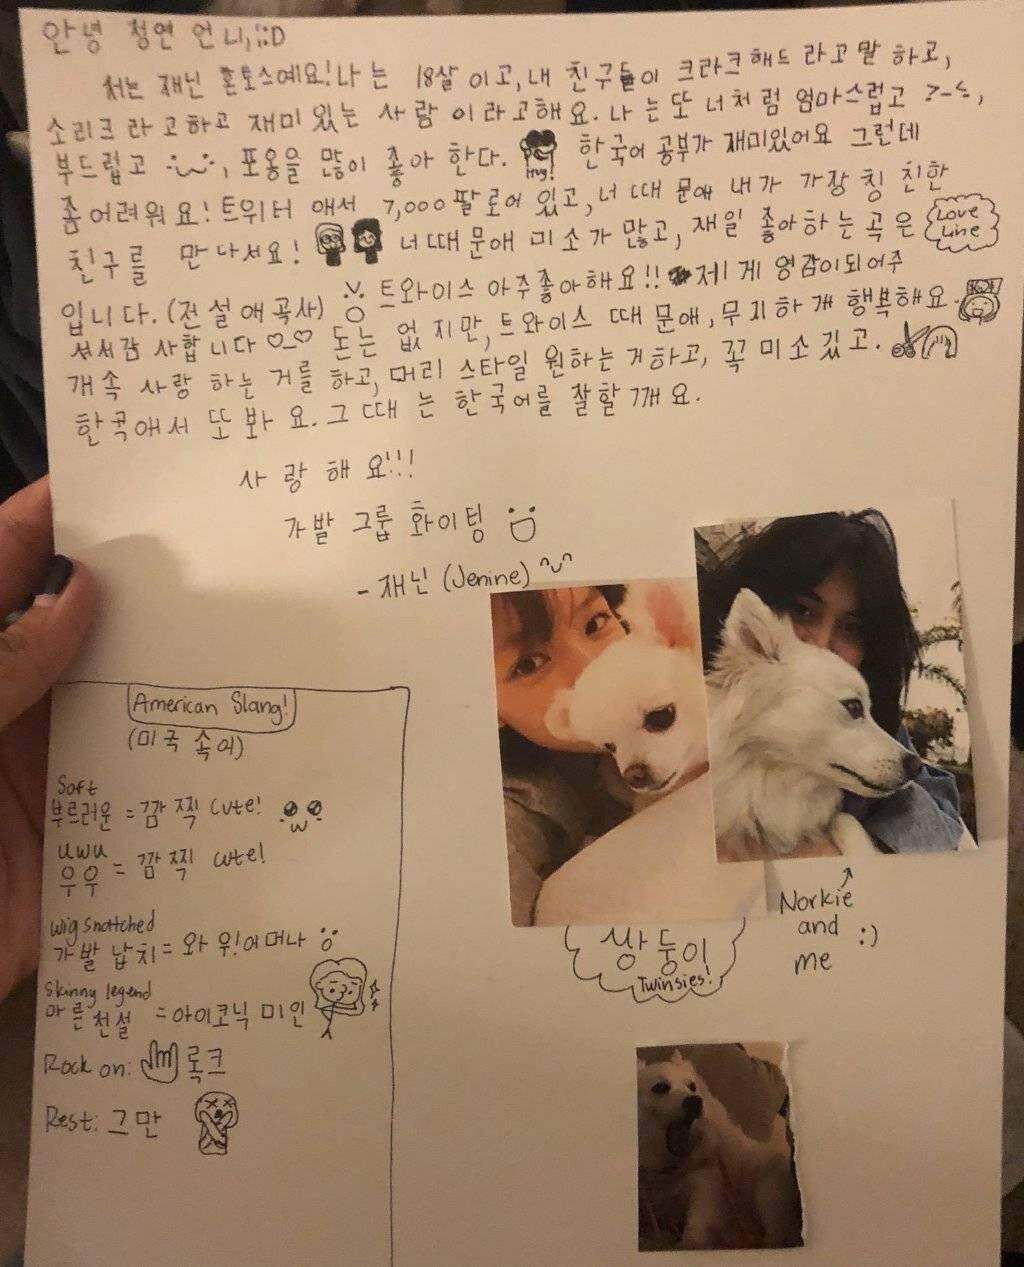 안녕 정연 언니,
저는 재닌 혼토스예요! 나는 18살 이고, 내 친구들이 크라크해드 라고 말 하고,
소리크 라고하고 재미 있는 사람 이라고해요. 나는 또 너처럼 엄마스럽고
부드럽고, 포옹을 많이 좋아 한다. Hug! 한국어 공부가 재미있어요 그런데
좀어려워요! 트위터 애서 7,000 팔로어 있고, 너 때 문애 내가 가장 칭 친한
친구를 만나서요! 너때문애 미소가 많고, 재일 좋아하는 곡은 Love Line
입니다. (전설 애곡사) 트와이스 아주좋아해요!! 제게 영감이되어주
셔서감 사합니다 돈는 없지만, 트와이스 때 문애, 무지하개 행복해요.
개속 사랑 하는 거를 하고, 머리 스타일 원하는 거하고, 꼭 미소 깄고.
한국애서 또 봐요. 그때는 한국어를 잘할 깨요.
사랑해요!!!
가발 그룹 화이팅
- 재닌 (Jenine)
American Slang!
(미국 속어)
Soft
부르러운 = 깜찍 cute!
uwu
우우 = 깜찍 cute!
Wig snatched
가발 납치 = 와우! 어머나
Skinny legend
마른 전설 = 아이코닉 미인
Rock on: 록크
Rest: 그만
Norkie
and :)
me
쌍둥이
Twinsies!